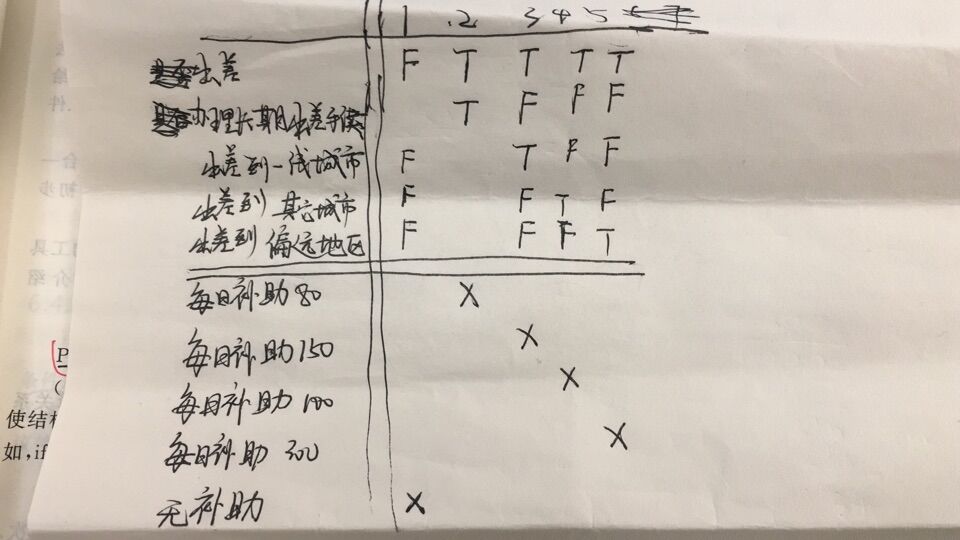 1 2 3 4 5
出差 F T T T T
办理长期出差手续 T F F F
出差到一线城市 F T F F
出差到其它城市 F F T F
出差到偏远地区 F F F T
每日补助80 X
每日补助150 X
每日补助100 X
每日补助 200 X
无补助 X
使结
如,if